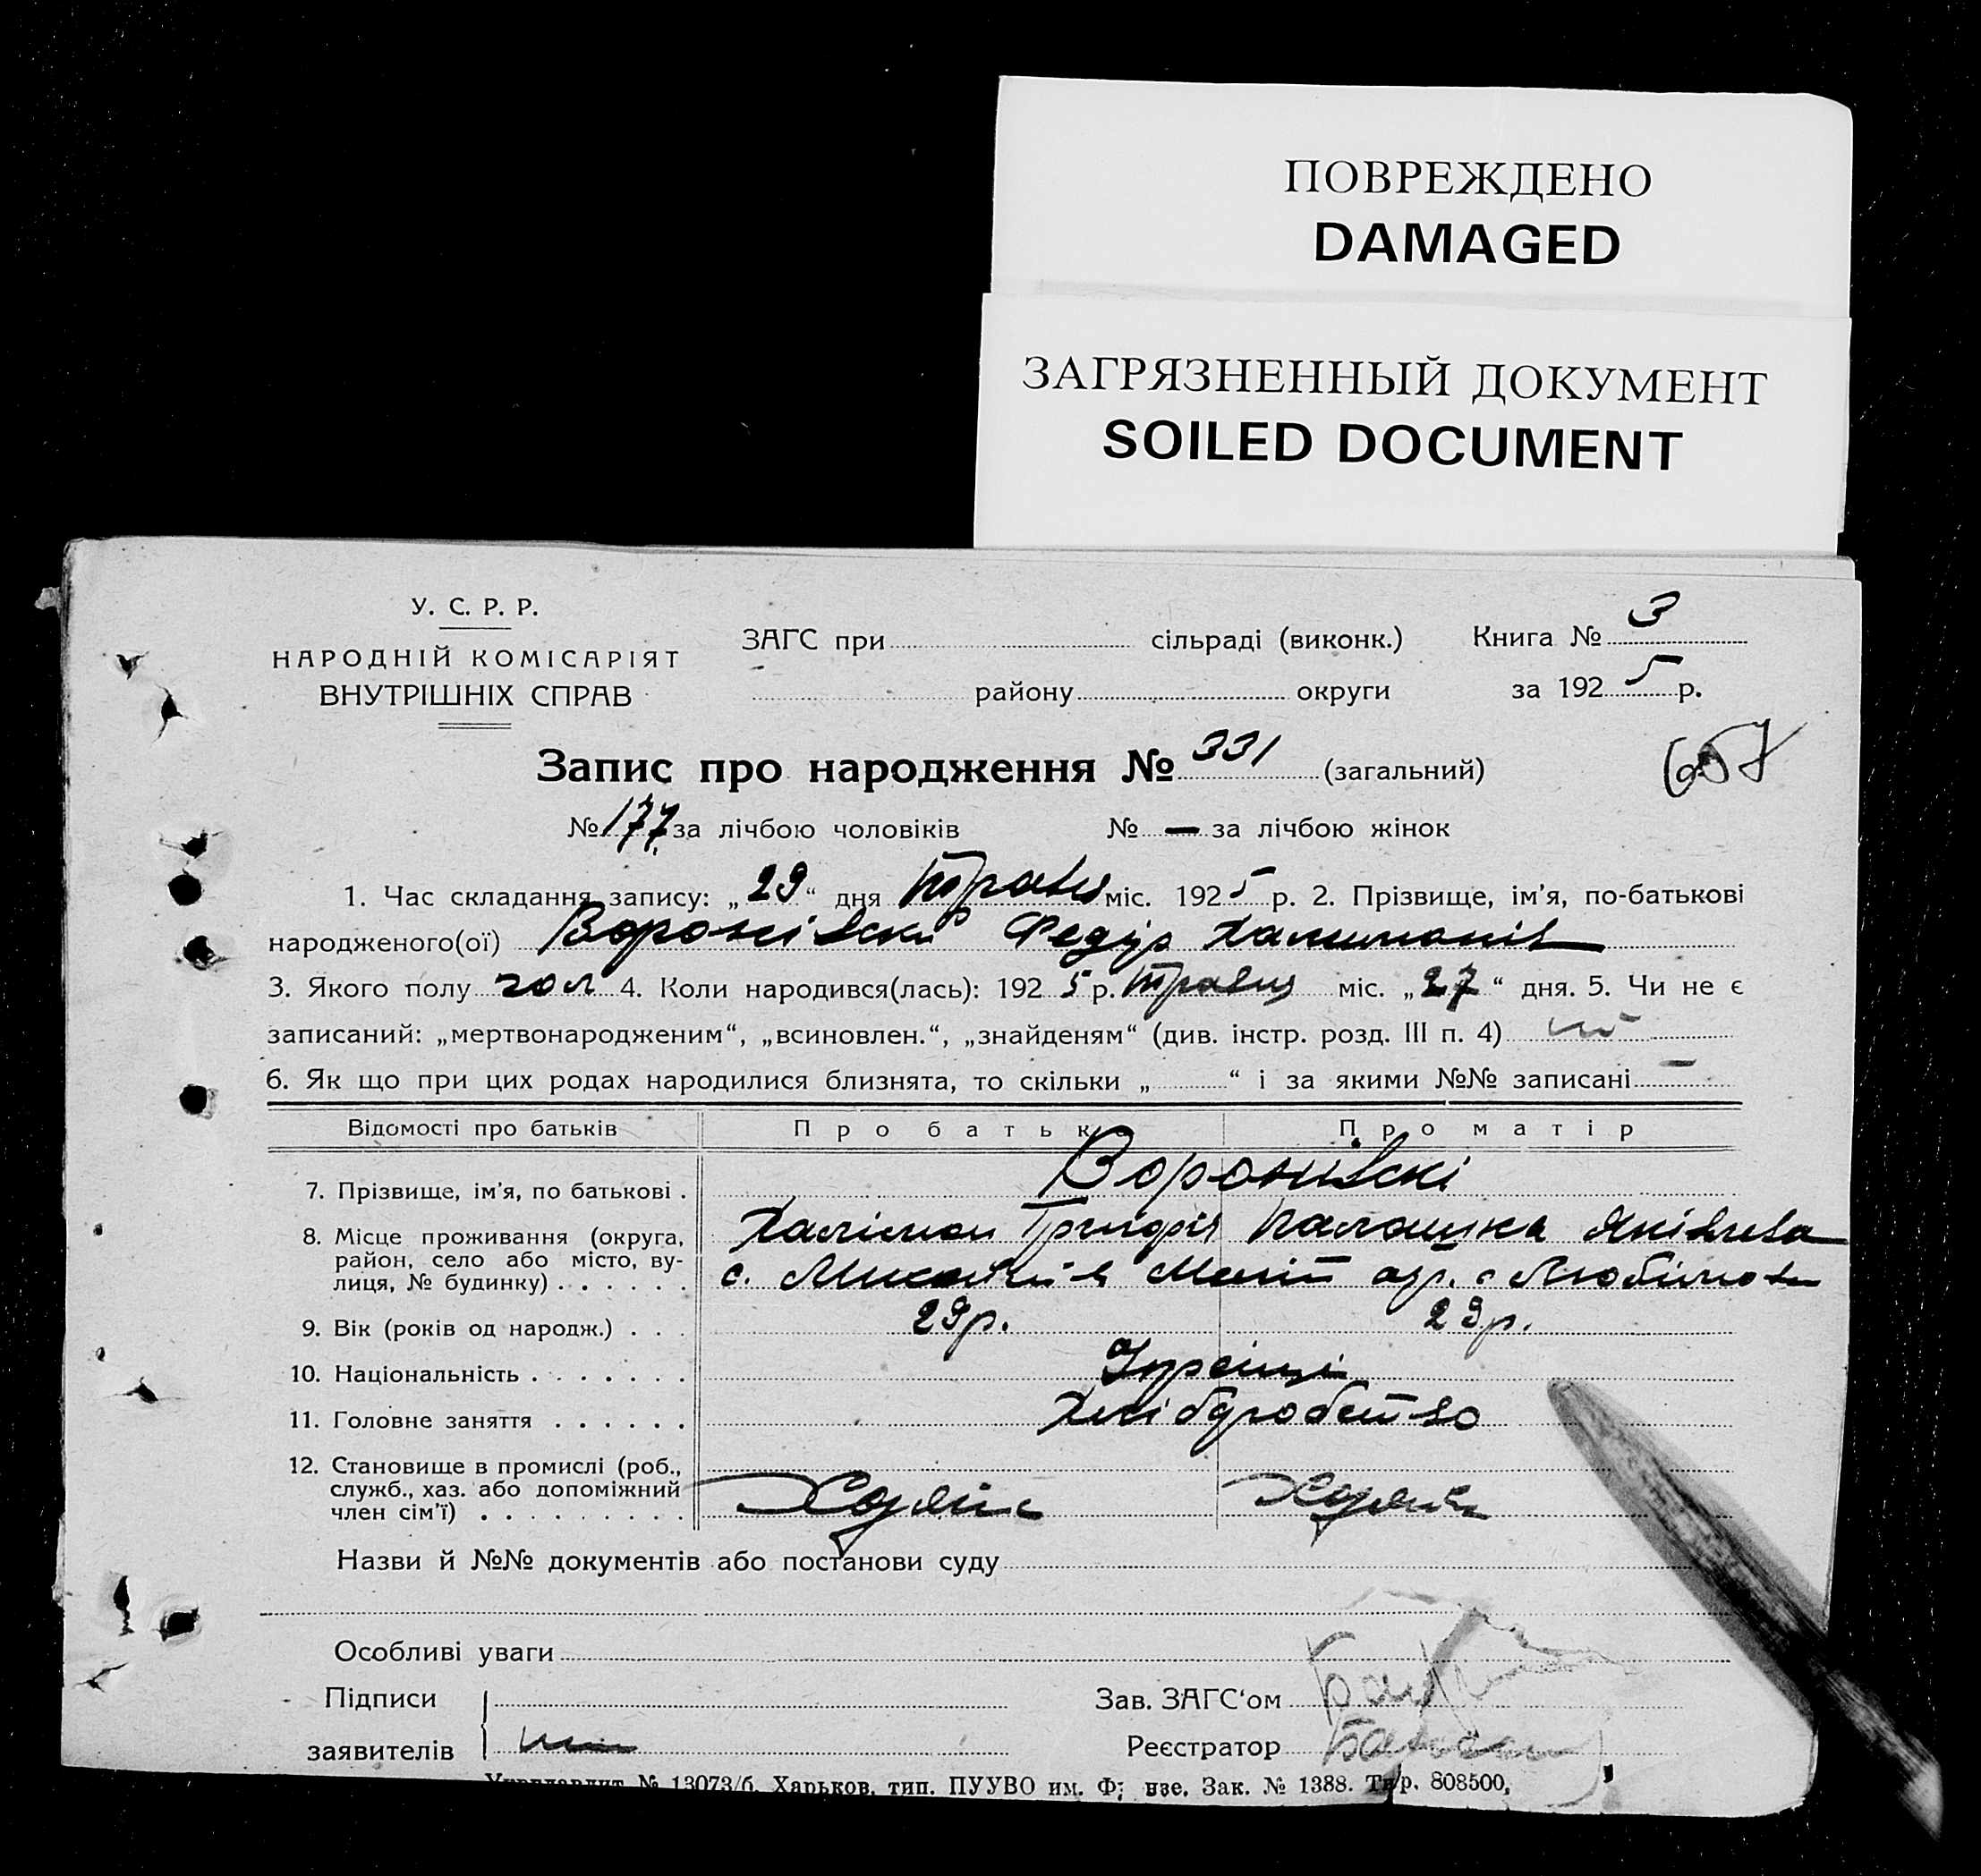 ПОВРЕЖДЕНО
DAMAGED
ЗАГРЯЗНЕННЫЙ ДОКУМЕНТ
SOILED DOCUMENT
У. С. Р. Р.
НАРОДНІЙ КОМІСАРІЯТ
ВНУТРІШНІХ СПРАВ
ЗАГС при сільраді (виконк.) Книга № 3
району округи за 1925 р.
Запис про народження № 331 (загальний)
657
№ 177 за лічбою чоловіків № — за лічбою жінок
1. Час складання запису: „29“ дня травня міс. 1925 р. 2. Прізвище, ім'я, по-батькові
народженого(ої) Федір
3. Якого полу чол 4. Коли народився(лась): 1925 р. травня міс. „27“ дня. 5. Чи не є
записаний: „мертвонародженим“, „всиновлен.“, „знайденям“ (див. інстр. розд. III п. 4)
6. Як що при цих родах народилися близнята, то скільки „ “ і за якими №№ записані —
Відомості про батьків Про батьк Про матір
7. Прізвище, ім'я, по батькові .
8. Місце проживання (округа,
район, село або місто, ву-
лиця, № будинку) . . . . . .
9. Вік (років од народж.) . . . 29р. 29р.
10. Національність . . . . . . .
11. Головне заняття . . . . . . Хліборобство
12. Становище в промислі (роб.,
служб., хаз. або допоміжний
член сім'ї) . . . . . . . . .
Назви й №№ документів або постанови суду
Особливі уваги
Підписи Зав. ЗАГС‘ом
заявителів Реєстратор
№ 13073/б. Харьков, тип. ПУУВО им. Зак. № 1388. 808500,